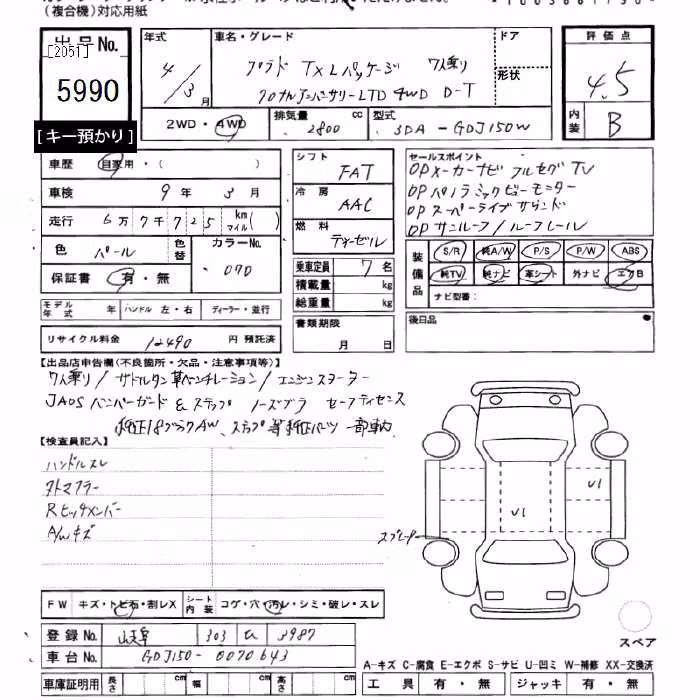 (複合機)対応用紙
出品No.
[2051]
5990
[キー預かり]
年式 4/3月
車名・グレード プラド TXLパッケージ 7人乗り
70thアニバーサリーLTD 4WD D-T
ドア
形状
評価点 4.5
内装 B
2WD・4WD
排気量 2800 cc
型式 3DA-GDJ150W
車歴 自家用・( )
車検 9年 3月
走行 6万7千725 km マイル( )
色 パール 色替
カラーNo. 070
保証書 有・無
モデル年式 年 ハンドル 左・右 ディーラー・並行
リサイクル料金 12490 円 預託済
シフト FAT
冷房 AAC
燃料 ディーゼル
乗車定員 7名
積載量 kg
総重量 kg
書類期限
月 日
セールスポイント
OPメーカーナビ フルセグTV
OPパノラミックビューモニター
OPスーパーライブサウンド
OPサンルーフ/ルーフレール
装備品 S/R 純A/W P/S P/W ABS
純TV 純ナビ 革シート 外ナビ エアB
ナビ型番:
後日品
【出品店申告欄(不良箇所・欠品・注意事項等)】
7人乗り/サドルタン革ベンチレーション/エンジンスターター
JAOSバンパーガード&ステップ ノーズブラ セーフティセンス
純正18ブラックAW、ステップ等純正パーツ一部車内
【検査員記入】
ハンドルスレ
タトマフラー
Rヒッチメンバー
A/Wキズ
U1
U1
スプレー
FW キズ・トビ石・割レX シート内装 コゲ・穴・汚レ・シミ・破レ・スレ
登録No. 303 ひ 3987
車台No. GDJ150-0070643
車庫証明用 長さ cm 幅 cm 高さ cm
スペア
A-キズ C-腐食 E-エクボ S-サビ U-凹ミ W-補修 XX-交換済
工具 有・無 ジャッキ 有・無